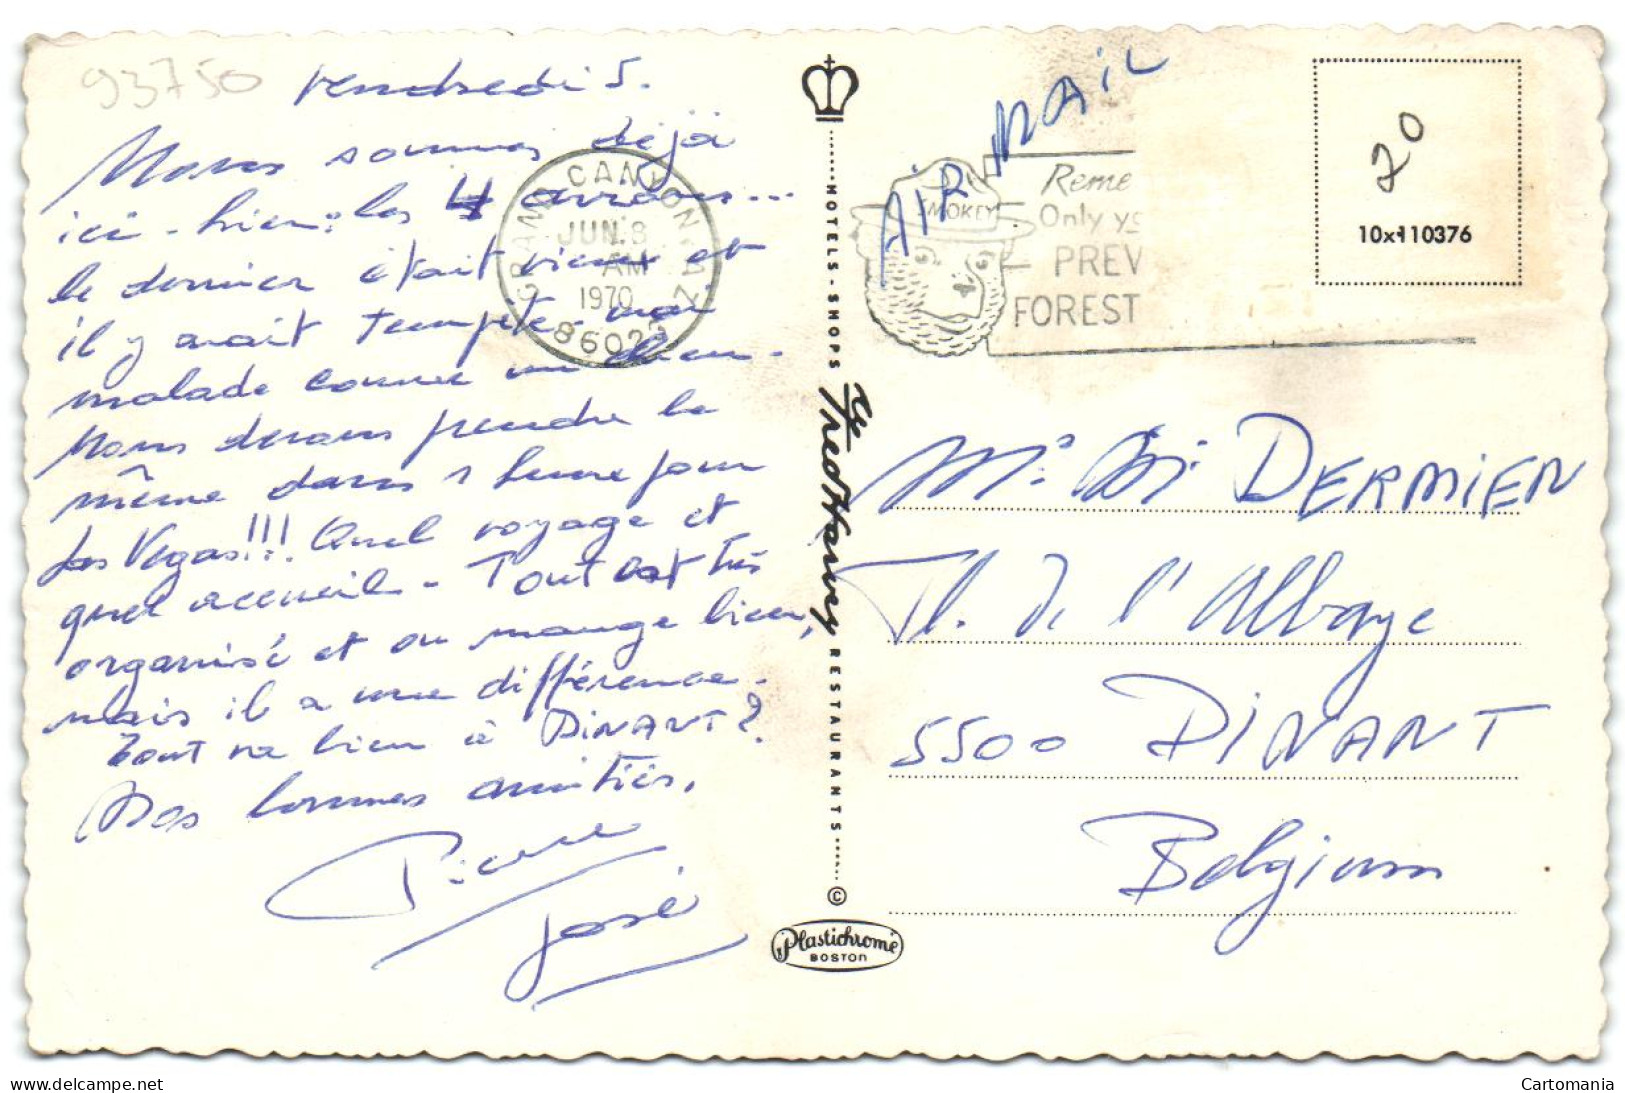 93750
Vendredi 5.
Nous sommes déjà
ici - hier: les 4 avions...
le dernier était vieux et
il y avait tempête. moi
malade comme un chien.
Nous devons prendre le
même dans 1 heure pour
Las Vegas!!! Quel voyage et
quel accueil - Tout est très
organisé et on mange bien,
mais il a une différence.
Tout va bien à DINANT?
Nos bonnes amitiés,
Pierre
José
GRAND CANYON
JUN 8
AM
1970
86023
HOTELS - SHOPS
Fred Harvey
RESTAURANTS
©
Plastichrome
BOSTON
AIR MAIL
SMOKEY
Reme
Only yo
PREV
FOREST
70
10x110376
DERMIEN
Pl. de l'Abbaye
5500 DINANT
Belgium
delcampe.net
Cartomania